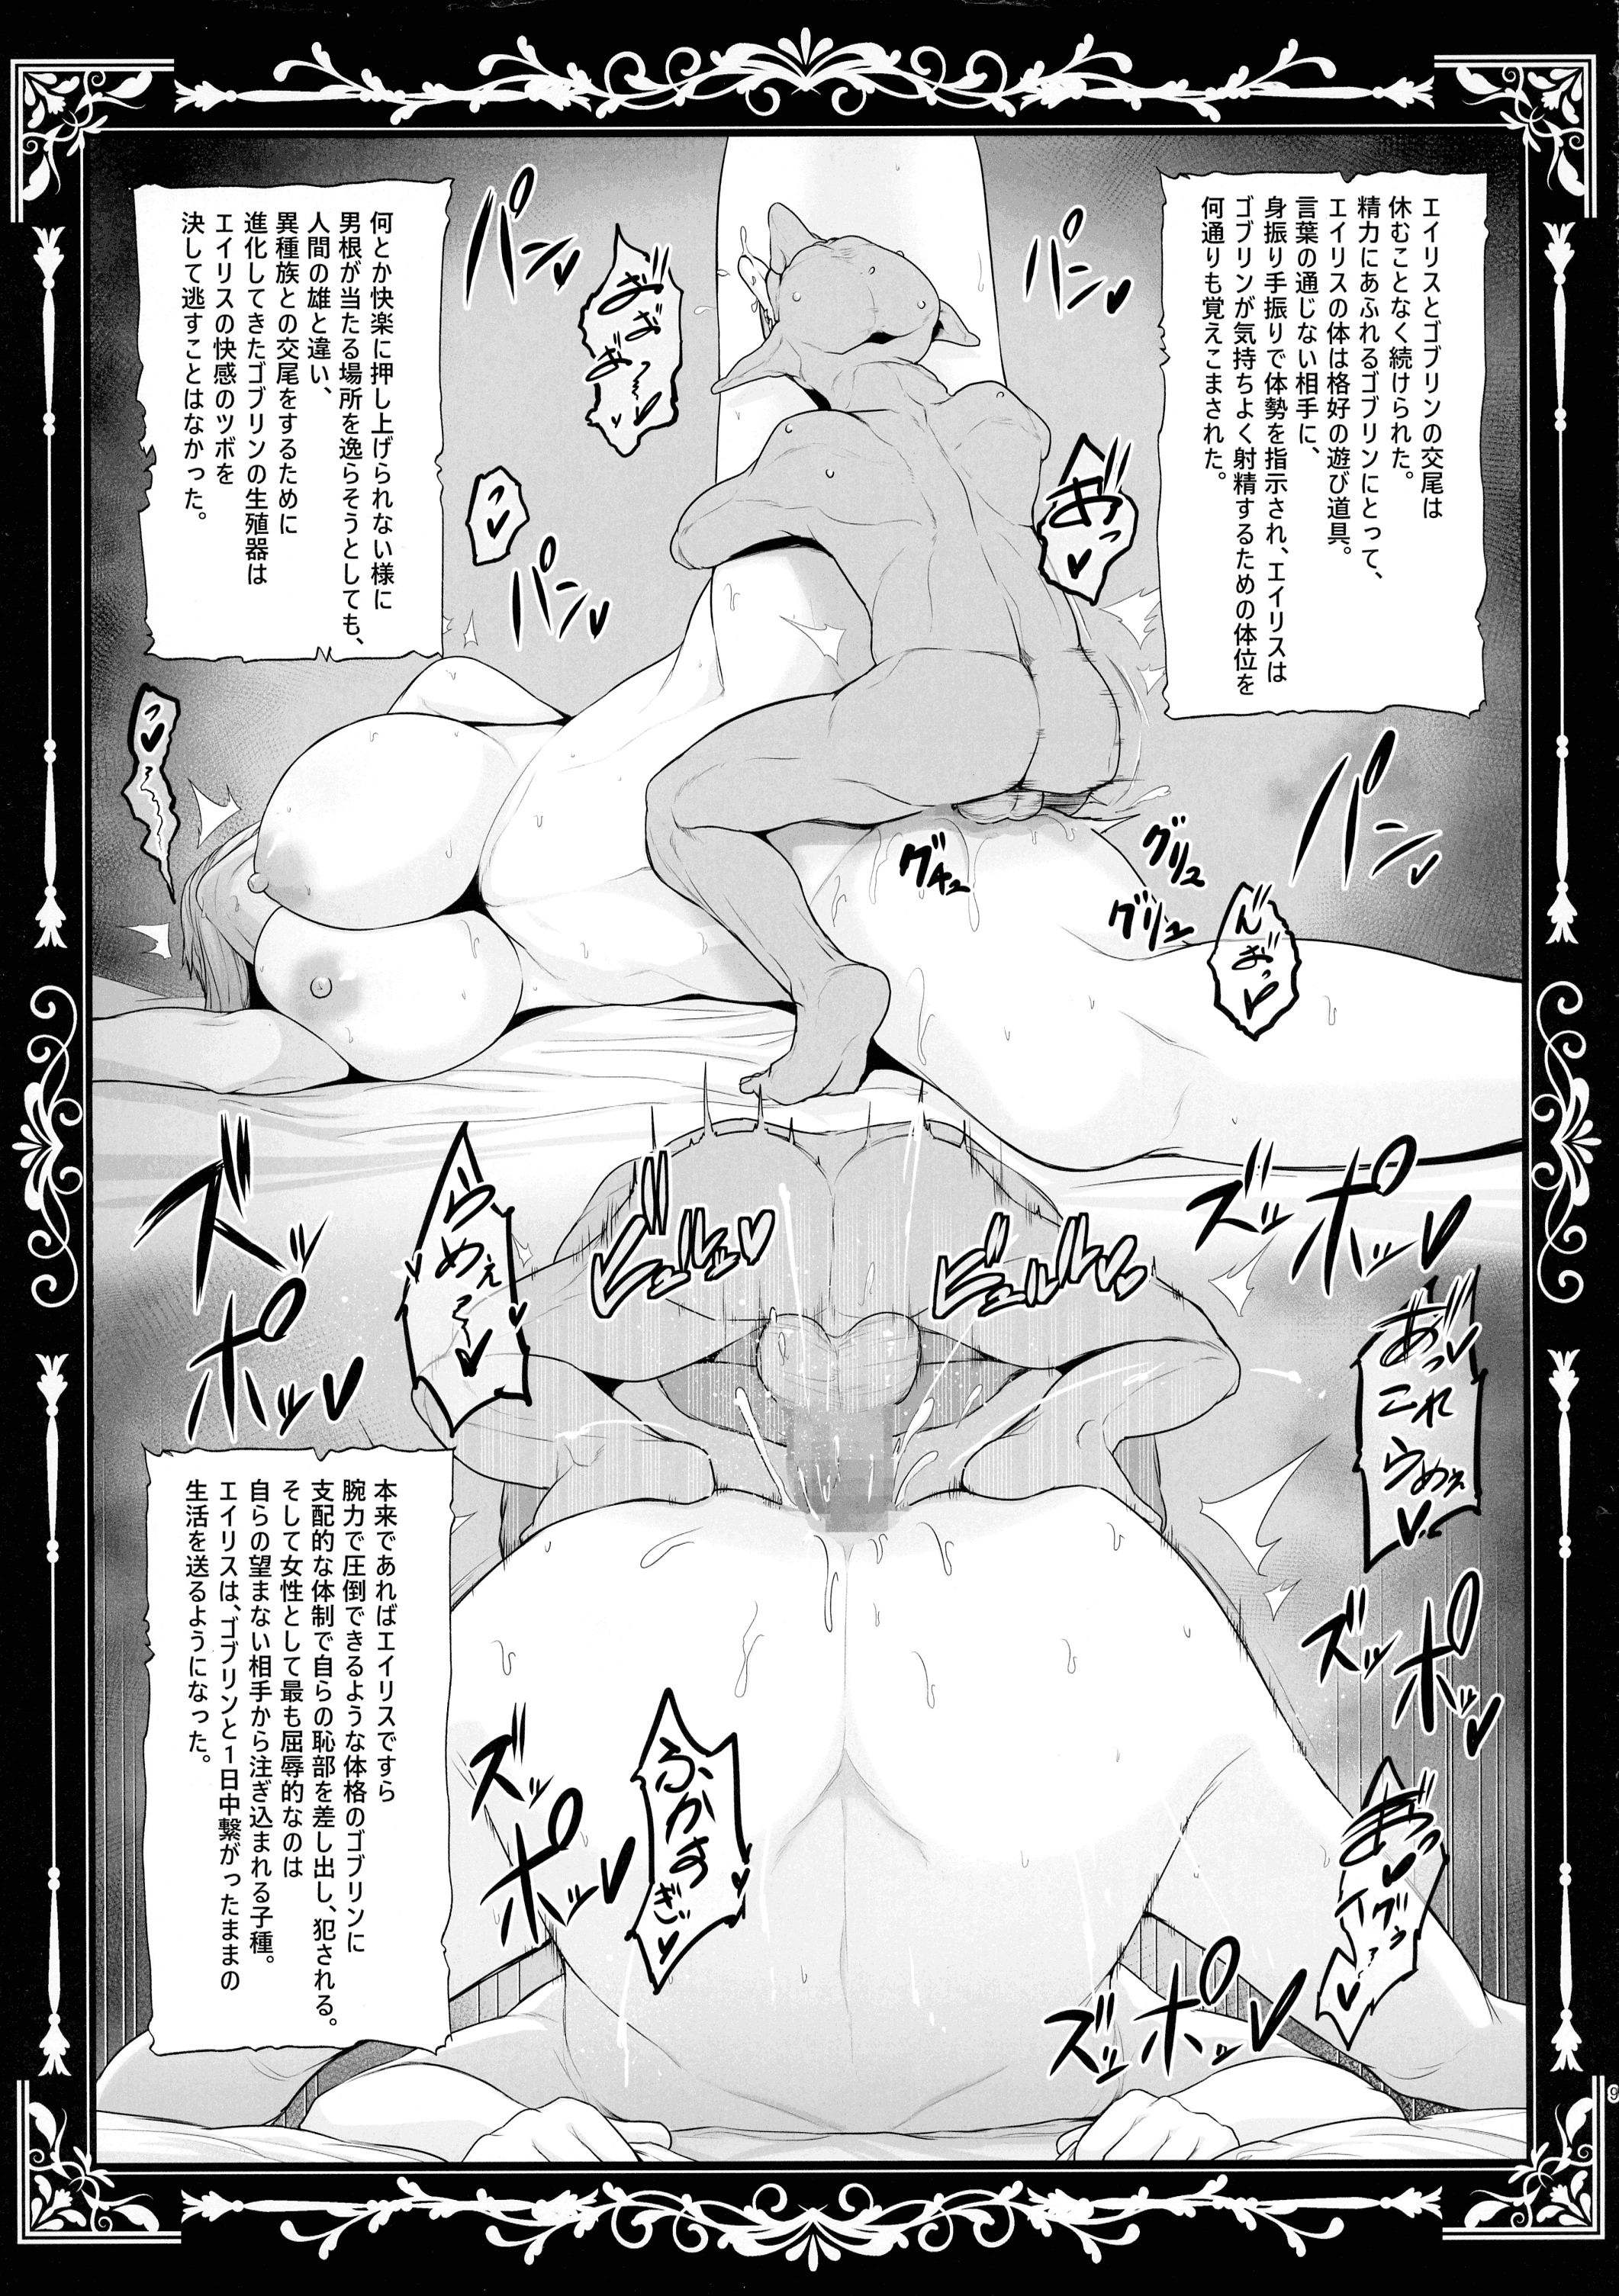 エイリスとゴブリンの交尾は
休むことなく続けられた。
精力にあふれるゴブリンにとって、
エイリスの体は格好の遊び道具。
言葉の通じない相手に、
身振り手振りで体勢を指示され、エイリスは
ゴブリンが気持ちよく射精するための体位を
何通りも覚えこまされた。
パン♥
お゛っ♥
パン♥
お゛お゛お゛~っ♥
っ♥
パン♥
何とか快楽に押し上げられない様に
男根が当たる場所を逸らそうとしても、
人間の雄と違い、
異種族との交尾をするために
進化してきたゴブリンの生殖器は
エイリスの快感のツボを
決して逃すことはなかった。
パン♥
グリュ
グリュ
グチュ
ん゛お゛っ♥
ズッポッ♥
ビュルルル♥
ビュルルッ♥
ズッポッ♥
あ゛っ♥
これ
らめぇ♥
ズッポッ♥
お゛っ♥
イグゥ
ズッポッ♥
ふかす
ぎ♥
ズッポッ♥
本来であればエイリスですら
腕力で圧倒できるような体格のゴブリンに
支配的な体制で自らの恥部を差し出し、犯される。
そして女性として最も屈辱的なのは
自らの望まない相手から注ぎ込まれる子種。
エイリスは、ゴブリンと1日中繋がったままの
生活を送るようになった。
9